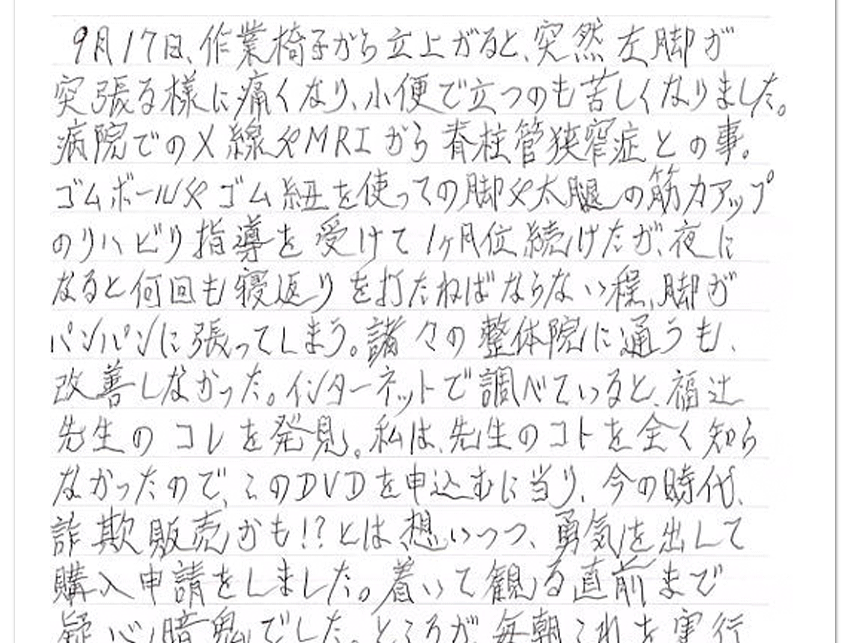 9月17日、作業椅子から立上がると、突然左脚が
突張る様に痛くなり、小便で立つのも苦しくなりました。
病院でのX線やMRIから脊柱管狭窄症との事。
ゴムボールやゴム紐を使っての脚や太腿の筋力アップ
のリハビリ指導を受けて1ヶ月位続けたが、夜に
なると何回も寝返りを打たねばならない程、脚が
パンパンに張ってしまう。諸々の整体院に通うも、
改善しなかった。インターネットで調べていると、福辻
先生のコレを発見。私は、先生のコトを全く知ら
なかったので、このDVDを申込むに当り、今の時代、
詐欺販売かも!?とは想いつつ、勇気を出して
購入申請をしました。着いて観る直前まで
疑心暗鬼でした。ところが、毎朝これを実行